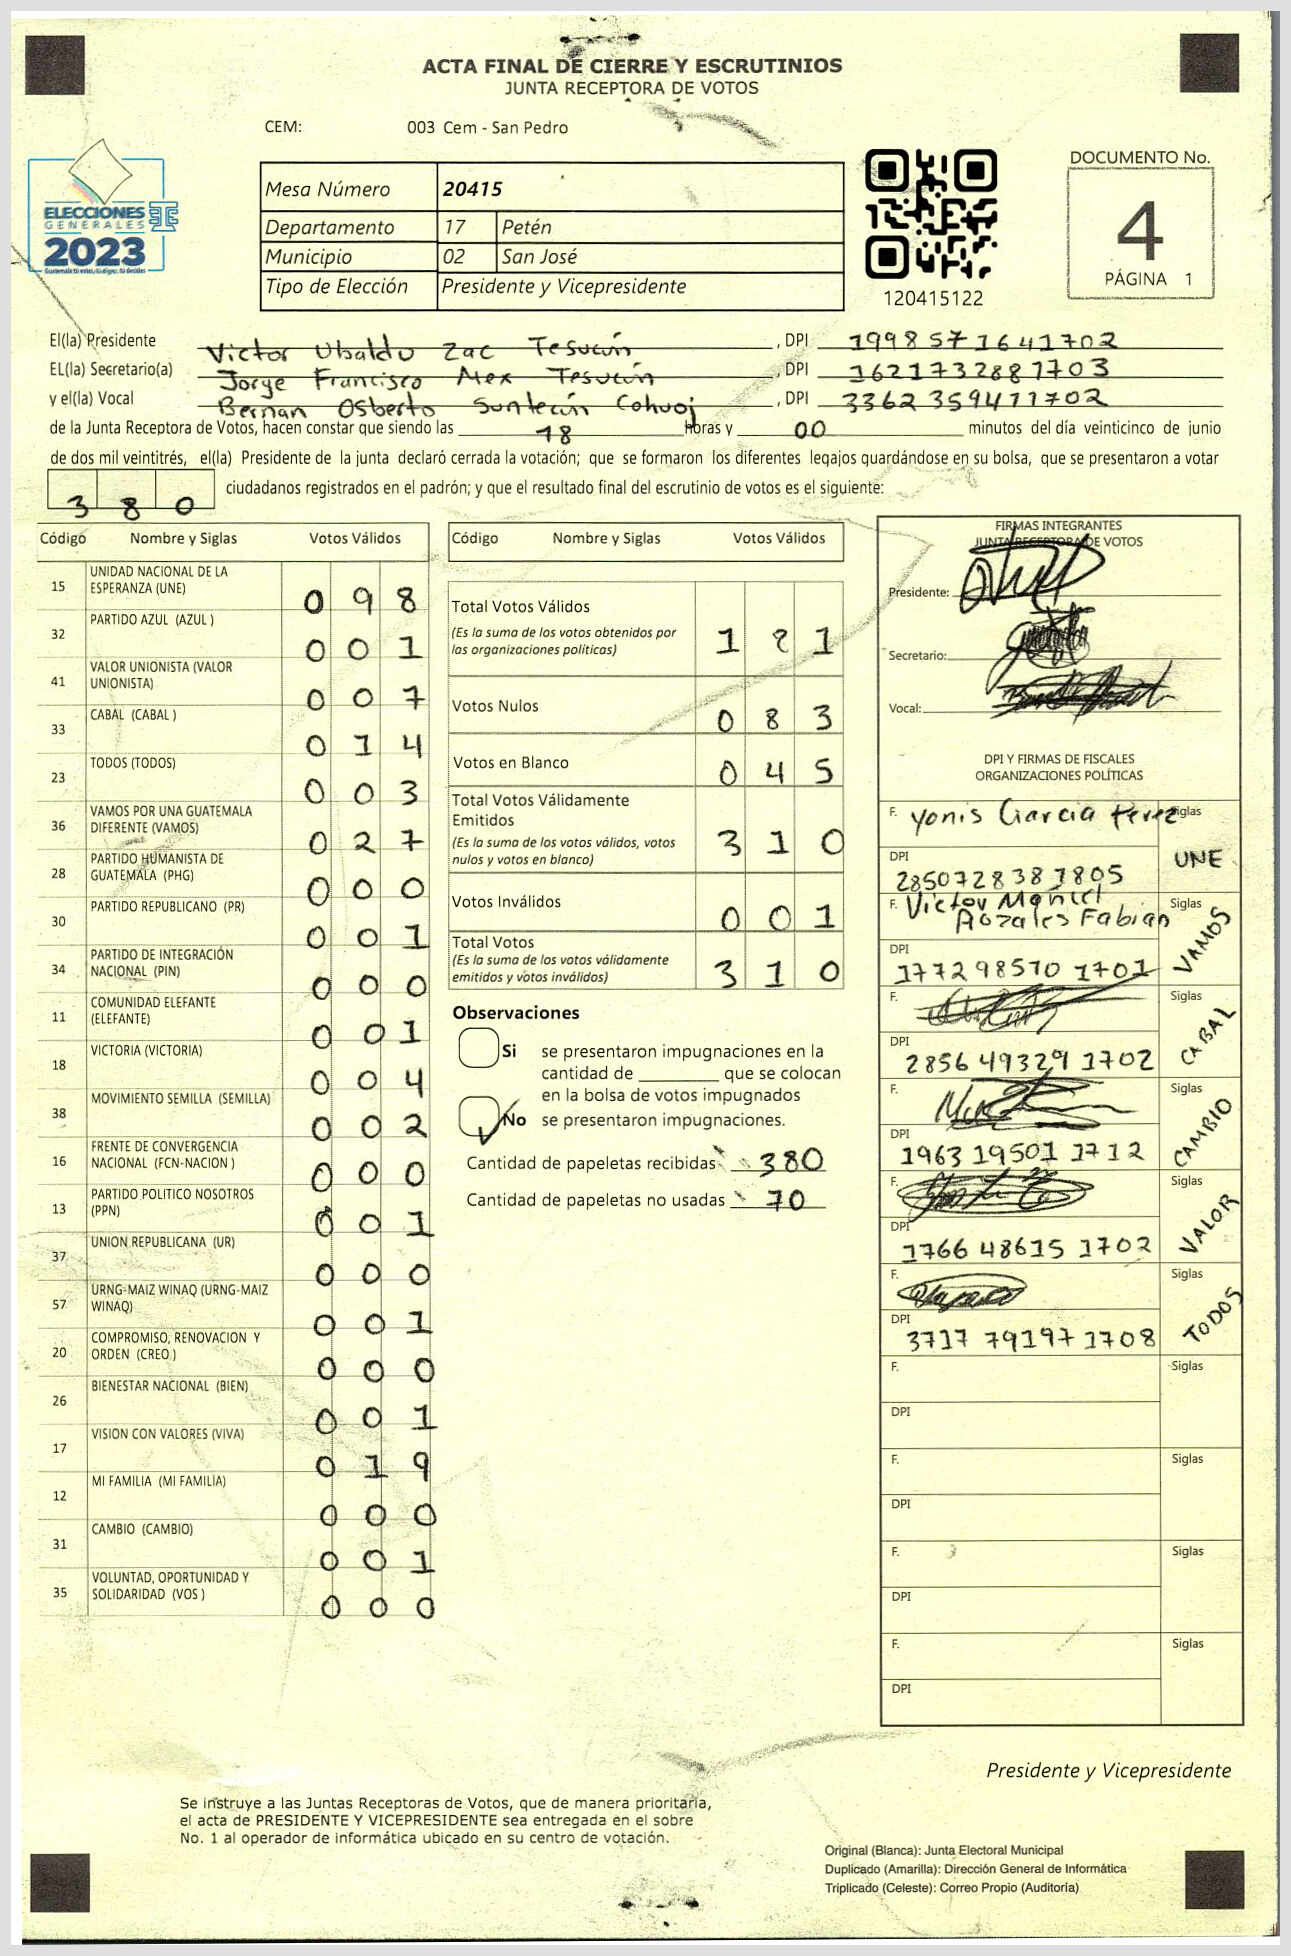 ACTA FINAL DE CIERRE Y ESCRUTINIOS
JUNTA RECEPTORA DE VOTOS
CEM: 003 Cem - San Pedro
ELECCIONES
GENERALES
2023
Mesa Número 20415
Departamento 17 Petén
Municipio 02 San José
Tipo de Elección Presidente y Vicepresidente
120415122
DOCUMENTO No.
4
PÁGINA 1
El(la) Presidente Victor Ubaldo Zac Tesucún , DPI 1998571641702
EL(la) Secretario(a) Jorge Francisco Mex Tesucún , DPI 1621732881703
y el(la) Vocal Bernan Osberto Suntecún Cohuoj , DPI 3362359471702
de la Junta Receptora de Votos, hacen constar que siendo las 18 horas y 00 minutos del día veinticinco de junio
de dos mil veintitrés, el(la) Presidente de la junta declaró cerrada la votación; que se formaron los diferentes legajos guardándose en su bolsa, que se presentaron a votar
380 ciudadanos registrados en el padrón; y que el resultado final del escrutinio de votos es el siguiente:
Código Nombre y Siglas Votos Válidos
15 UNIDAD NACIONAL DE LA ESPERANZA (UNE) 098
32 PARTIDO AZUL (AZUL ) 001
41 VALOR UNIONISTA (VALOR UNIONISTA) 007
33 CABAL (CABAL ) 014
23 TODOS (TODOS) 003
36 VAMOS POR UNA GUATEMALA DIFERENTE (VAMOS) 027
28 PARTIDO HUMANISTA DE GUATEMALA (PHG) 000
30 PARTIDO REPUBLICANO (PR) 001
34 PARTIDO DE INTEGRACIÓN NACIONAL (PIN) 000
11 COMUNIDAD ELEFANTE (ELEFANTE) 001
18 VICTORIA (VICTORIA) 004
38 MOVIMIENTO SEMILLA (SEMILLA) 002
16 FRENTE DE CONVERGENCIA NACIONAL (FCN-NACION ) 000
13 PARTIDO POLITICO NOSOTROS (PPN) 001
37 UNION REPUBLICANA (UR) 000
57 URNG-MAIZ WINAQ (URNG-MAIZ WINAQ) 001
20 COMPROMISO, RENOVACION Y ORDEN (CREO ) 000
26 BIENESTAR NACIONAL (BIEN) 001
17 VISION CON VALORES (VIVA) 019
12 MI FAMILIA (MI FAMILIA) 000
31 CAMBIO (CAMBIO) 001
35 VOLUNTAD, OPORTUNIDAD Y SOLIDARIDAD (VOS ) 000
Código Nombre y Siglas Votos Válidos
Total Votos Válidos 181
(Es la suma de los votos obtenidos por
las organizaciones políticas)
Votos Nulos 083
Votos en Blanco 045
Total Votos Válidamente
Emitidos 310
(Es la suma de los votos válidos, votos
nulos y votos en blanco)
Votos Inválidos 001
Total Votos 310
(Es la suma de los votos válidamente
emitidos y votos inválidos)
Observaciones
Si se presentaron impugnaciones en la
cantidad de ________ que se colocan
en la bolsa de votos impugnados
No se presentaron impugnaciones.
Cantidad de papeletas recibidas 380
Cantidad de papeletas no usadas 70
FIRMAS INTEGRANTES
JUNTA RECEPTORA DE VOTOS
Presidente:
Secretario:
Vocal:
DPI Y FIRMAS DE FISCALES
ORGANIZACIONES POLÍTICAS
F. Yonis Garcia Perez Siglas UNE
DPI 2850728387805
F. Victor Manuel Rozales Fabian Siglas VAMOS
DPI 177298570 1701
F. Siglas CABAL
DPI 2856 49329 1702
F. Siglas CAMBIO
DPI 1963 19501 1712
F. Siglas VALOR
DPI 1766 48615 1702
F. Siglas TODOS
DPI 3717 79197 1708
F. Siglas
DPI
F. Siglas
DPI
F. Siglas
DPI
F. Siglas
DPI
Presidente y Vicepresidente
Se instruye a las Juntas Receptoras de Votos, que de manera prioritaria,
el acta de PRESIDENTE Y VICEPRESIDENTE sea entregada en el sobre
No. 1 al operador de informática ubicado en su centro de votación.
Original (Blanca): Junta Electoral Municipal
Duplicado (Amarilla): Dirección General de Informática
Triplicado (Celeste): Correo Propio (Auditoría)